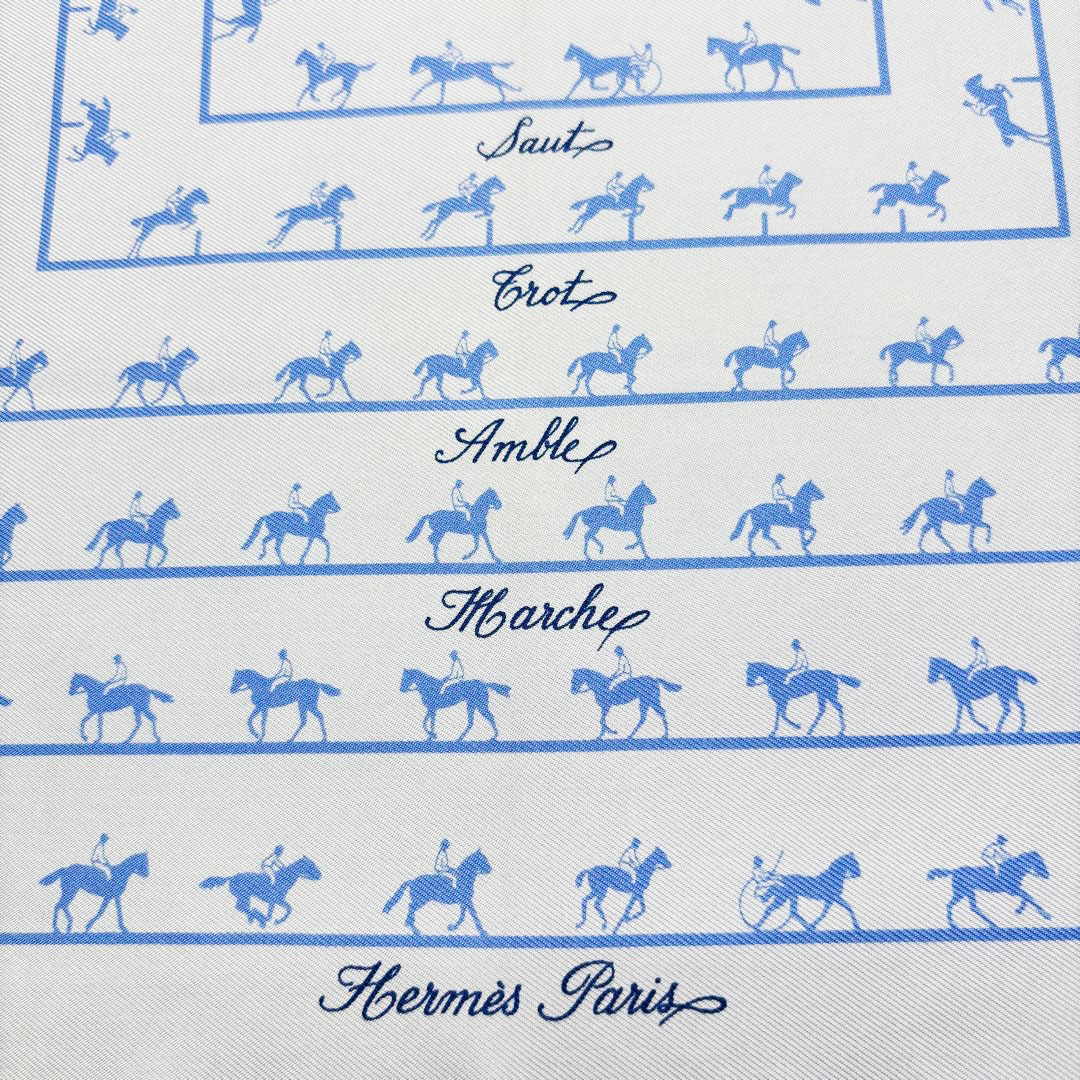 Saut
Trot
Amble
Marche
Hermès Paris